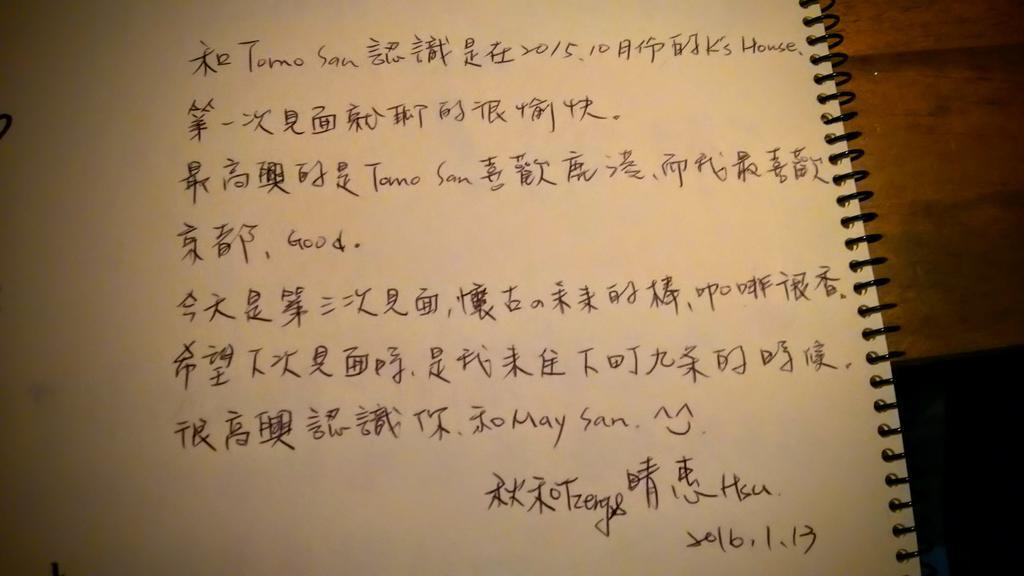 和Tomo San 認識是在2015.10月份的K's House.
第一次見面就聊的很愉快。
最高興的是Tomo San喜歡鹿港、而我最喜歡
京都, Good.
今天是第三次見面,懷古の未来的棒,咖啡很香。
希望下次見面時、是我来住下町九条的時候.
很高興認識你、和May San. ^^.
秋和Tzeng & 晴惠Hsu.
2016.1.13